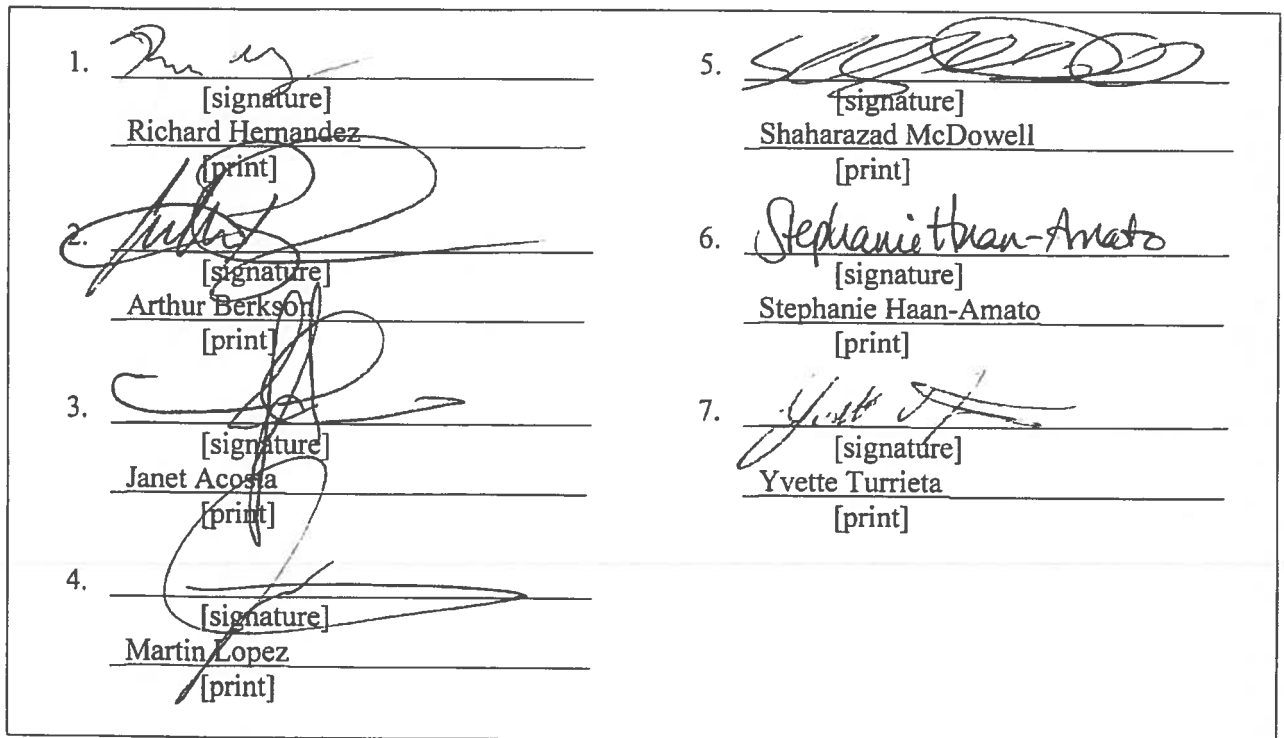 1.
[signature]
Richard Hernandez
[print]
2.
[signature]
Arthur Berkson
[print]
3.
[signature]
Janet Acosta
[print]
4.
[signature]
Martin Lopez
[print]
5.
[signature]
Shaharazad McDowell
[print]
6. Stephanie Haan-Amato
[signature]
Stephanie Haan-Amato
[print]
7.
[signature]
Yvette Turrieta
[print]